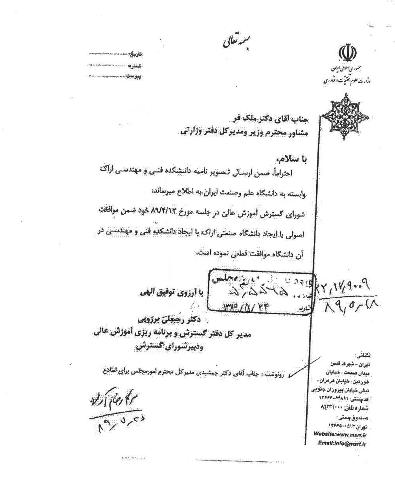 بسمه تعالی
جمهوری اسلامی ایران
وزارت علوم، تحقیقات و فناوری
تاریخ:
شماره:
پیوست:
جناب آقای دکتر ملک فر
مشاور محترم وزیر و مدیرکل دفتر وزارتی
با سلام،
احتراماً، ضمن ارسال تصویر نامه دانشکده فنی و مهندسی اراک
وابسته به دانشگاه علم و صنعت ایران به اطلاع میرساند:
شورای گسترش آموزش عالی در جلسه مورخ ۸۹/۴/۱۲ خود ضمن موافقت
اصولی با ایجاد دانشگاه صنعتی اراک با ایجاد دانشکده فنی و مهندسی در
آن دانشگاه موافقت قطعی نموده است.
مجلس
با آرزوی توفیق الهی
دکتر رجبعلی برزویی
مدیر کل دفتر گسترش و برنامه ریزی آموزش عالی
و دبیر شورای گسترش
رونوشت: جناب آقای دکتر جمشیدی مدیرکل محترم امور مجلس برای اطلاع
نشانی:
تهران - شهرک قدس
میدان صنعت - خیابان
خوردین - خیابان هرمزان -
نبش خیابان پیروزان جنوبی
کد پستی:
شماره تلفن:
صندوق پستی:
Website:www.msrt.ir
Email:info@msrt.ir